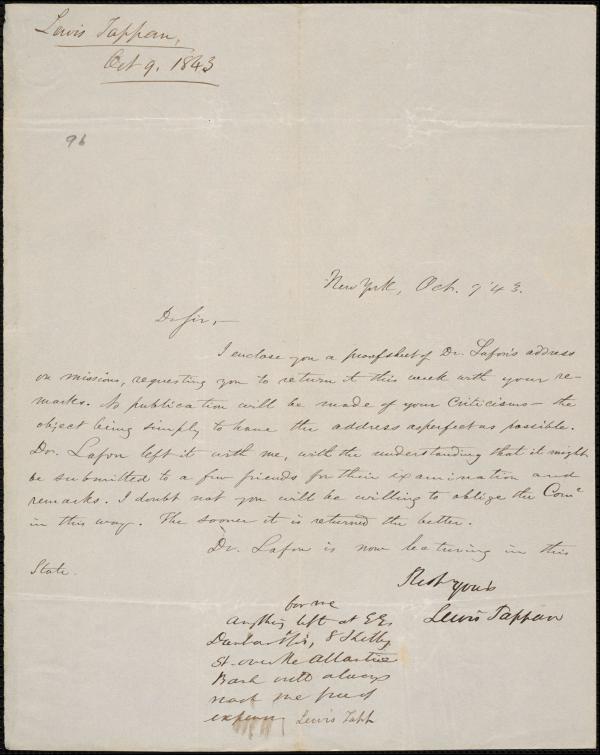 Lewis Tappan,
Oct 9. 1843
96
New York, Oct. 9 '43.
Dr Sir,
I enclose you a proofsheet of Dr. Lafon's address
on missions, requesting you to return it this week with your re-
marks. No publication will be made of your criticisms - the
object being simply to have the address as perfect as possible.
Dr. Lafon left it with me, with the understanding that it might
be submitted to a few friends for their examination and
remarks. I doubt not you will be willing to oblige the Com
in this way. The sooner it is returned the better.
Dr. Lafon is now lecturing in this
State.
yours
Lewis Tappan
for me
Anything left at
8
St. over the Atlantic
Bank will always
reach me free of
expense Lewis Tapp